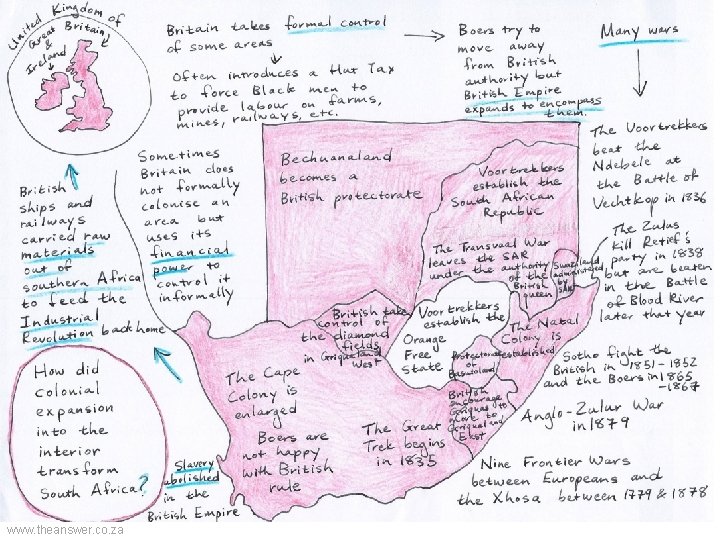 United Kingdom of
Great Britain
&
Ireland
Britain takes formal control
of some areas
Often introduces a Hut Tax
to force Black men to
provide labour on farms,
mines, railways, etc.
Boers try to
move away
from British
authority but
British Empire
expands to encompass
them.
Many wars
The Voortrekkers
beat the
Ndebele at
the Battle of
Vechtkop in 1836
The Zulus
kill Retief's
party in 1838
but are beaten
in the Battle
of Blood River
later that year
Sotho fight the
British in 1851-1852
and the Boers in 1865
-1867
Anglo-Zulu War
in 1879
Nine Frontier Wars
between Europeans and
the Xhosa between 1779 & 1878
British
ships and
railways
carried raw
materials
out of
southern Africa
to feed the
Industrial
Revolution back home
Sometimes
Britain does
not formally
colonise an
area but
uses its
financial
power to
control it
informally
Bechuanaland
becomes a
British protectorate
Voortrekkers
establish the
South African
Republic
The Transvaal War
leaves the SAR
under the authority
of the
British
queen
Swaziland
administered
by
SAR
British take
control of
the diamond
fields
in Griqualand
West
Voortrekkers
establish the
Orange
Free
State
The Natal
Colony is
established
Protectorate
of
Basutoland
British
encourage
Griquas to
move to
Griqualand
East
The Cape
Colony is
enlarged
Boers are
not happy
with British
rule
The Great
Trek begins
in 1835
Slavery
abolished
in the
British Empire
How did
colonial
expansion
into the
interior
transform
South Africa?
www.theanswer.co.za